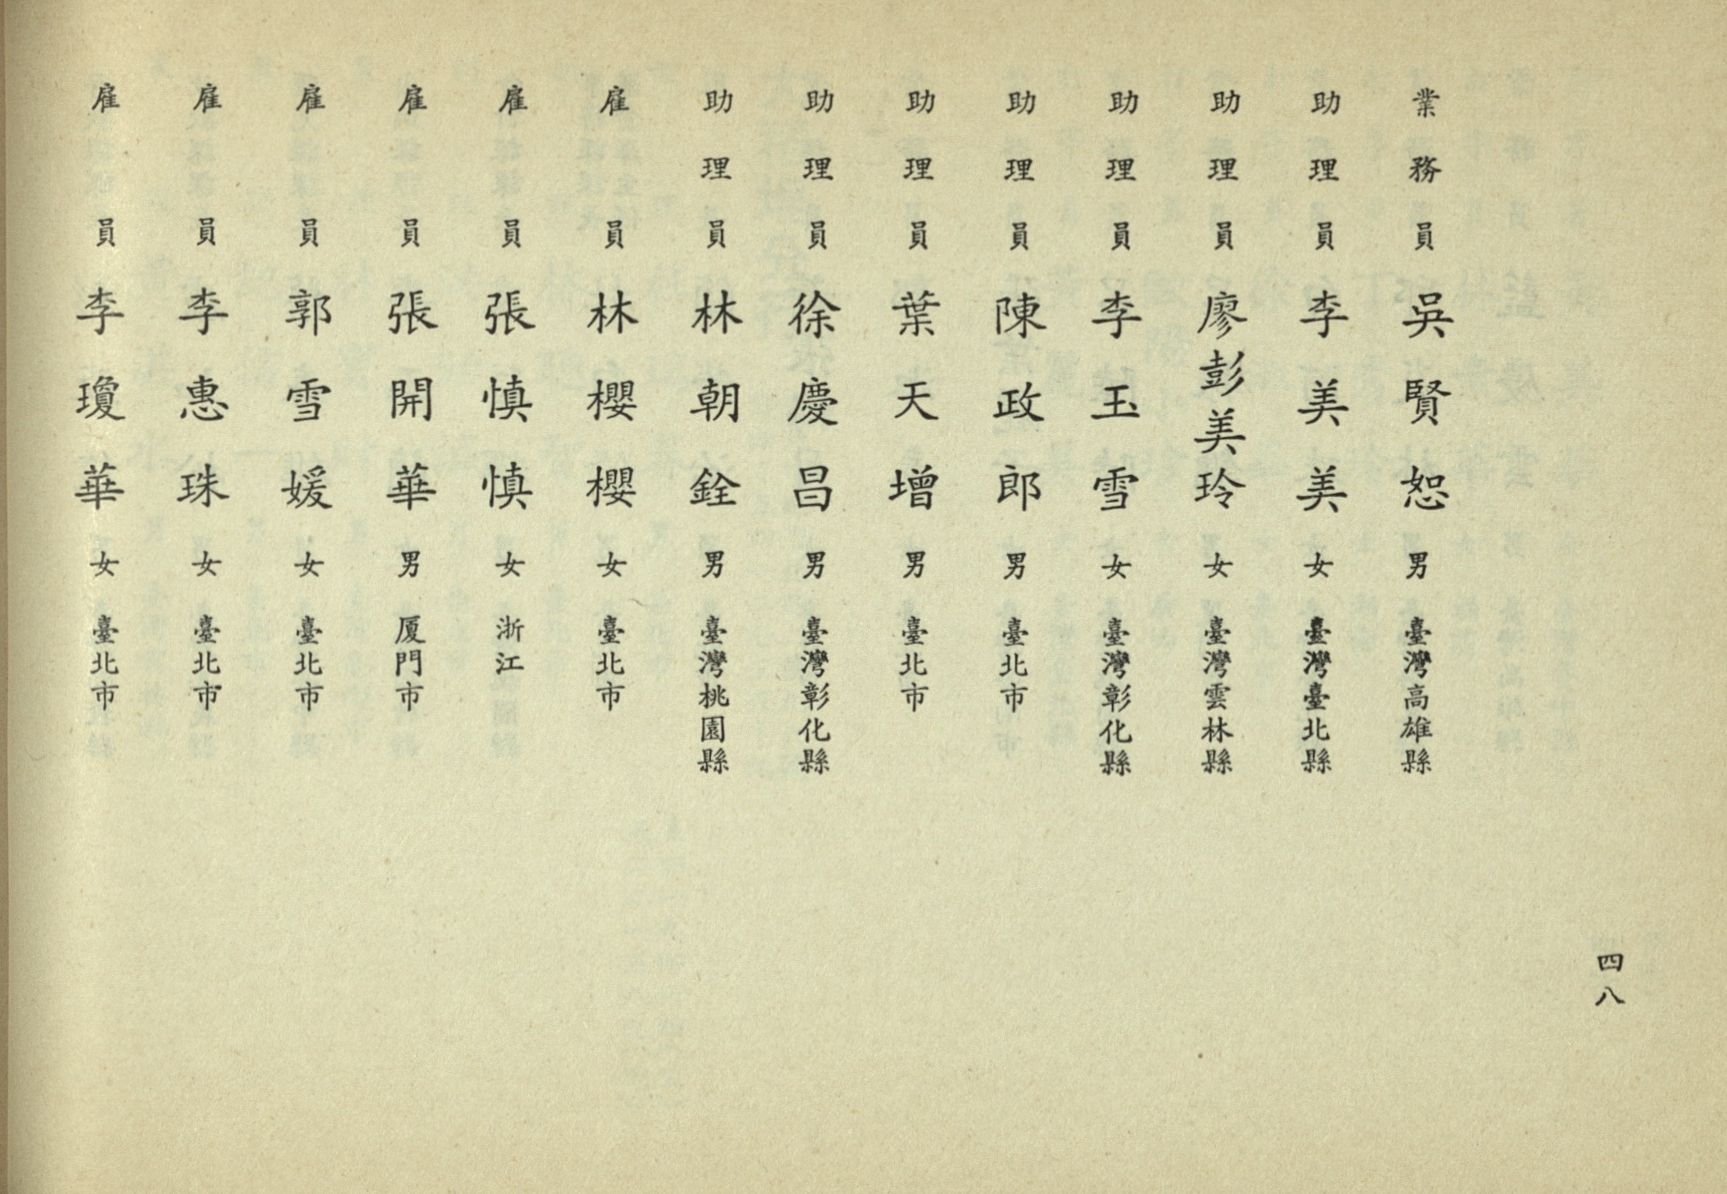 業務員 吳賢恕 男 臺灣高雄縣
助理員 李美美 女 臺灣臺北縣
助理員 廖彭美玲 女 臺灣雲林縣
助理員 李玉雪 女 臺灣彰化縣
助理員 陳政郎 男 臺北市
助理員 葉天增 男 臺北市
助理員 徐慶昌 男 臺灣彰化縣
助理員 林朝銓 男 臺灣桃園縣
雇員 林櫻櫻 女 臺北市
雇員 張慎慎 女 浙江
雇員 張開華 男 厦門市
雇員 郭雪媛 女 臺北市
雇員 李惠珠 女 臺北市
雇員 李瓊華 女 臺北市
四八